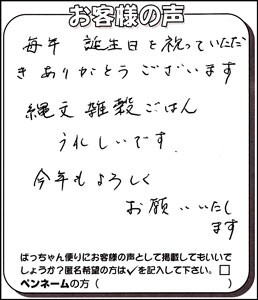 お客様の声
毎年 誕生日を祝っていただ
きありがとうございます
縄文 雑穀ごはん
うれしいです.
今年もよろしく
お願いいたし
ます
ばっちゃん便りにお客様の声として掲載してもいいで
しょうか?匿名希望の方は✓を記入して下さい。□
ペンネームの方( )